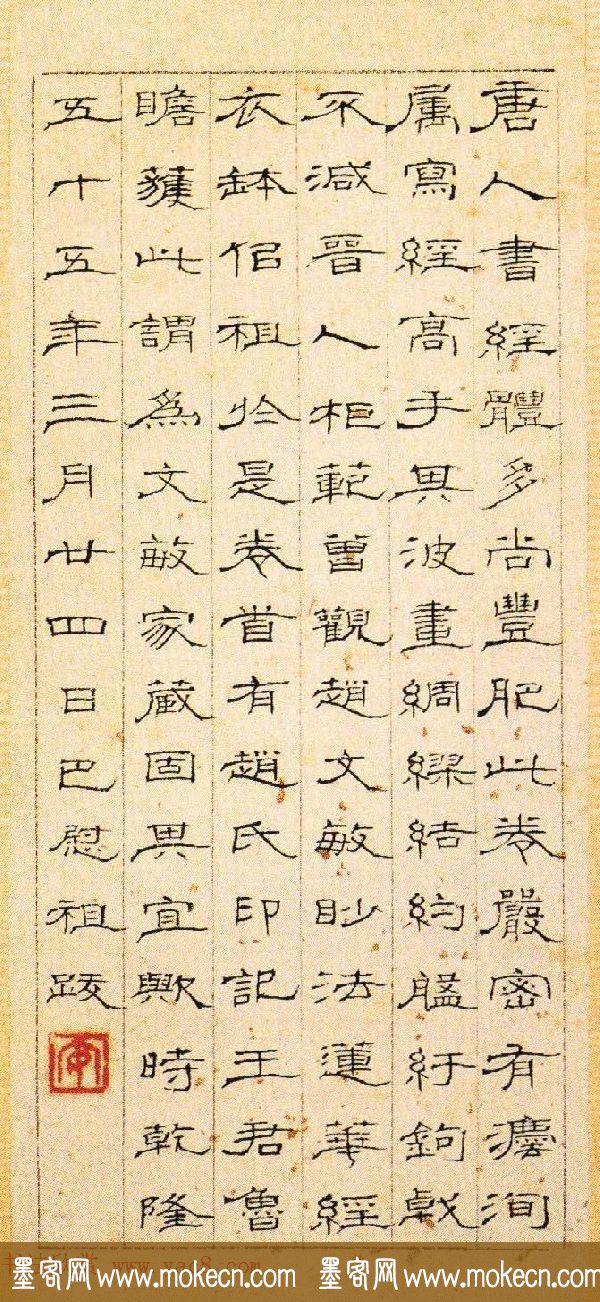 唐人書經體多尚豐肥此卷嚴密有灋洵
属寫經高手其波畫綢繆結約紆鉤戟
不減晉人柜範曾觀趙文敏眇法蓮華經
衣鉢佀祖於是卷首有趙氏印記王君魯
瞻獲此謂為文敏家藏固其宜歟時乾隆
五十五年三月廿四日巴慰祖跋
www.yac8.com
墨客网 www.mokecn.com 墨客网 www.mokecn.com